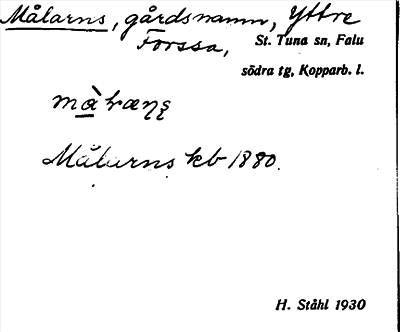 Målarns, gårdsnamn, Yttre
Forssa, St. Tuna sn, Falu
södra tg, Kopparb. l.
Målarns kb 1880.
H. Ståhl 1930